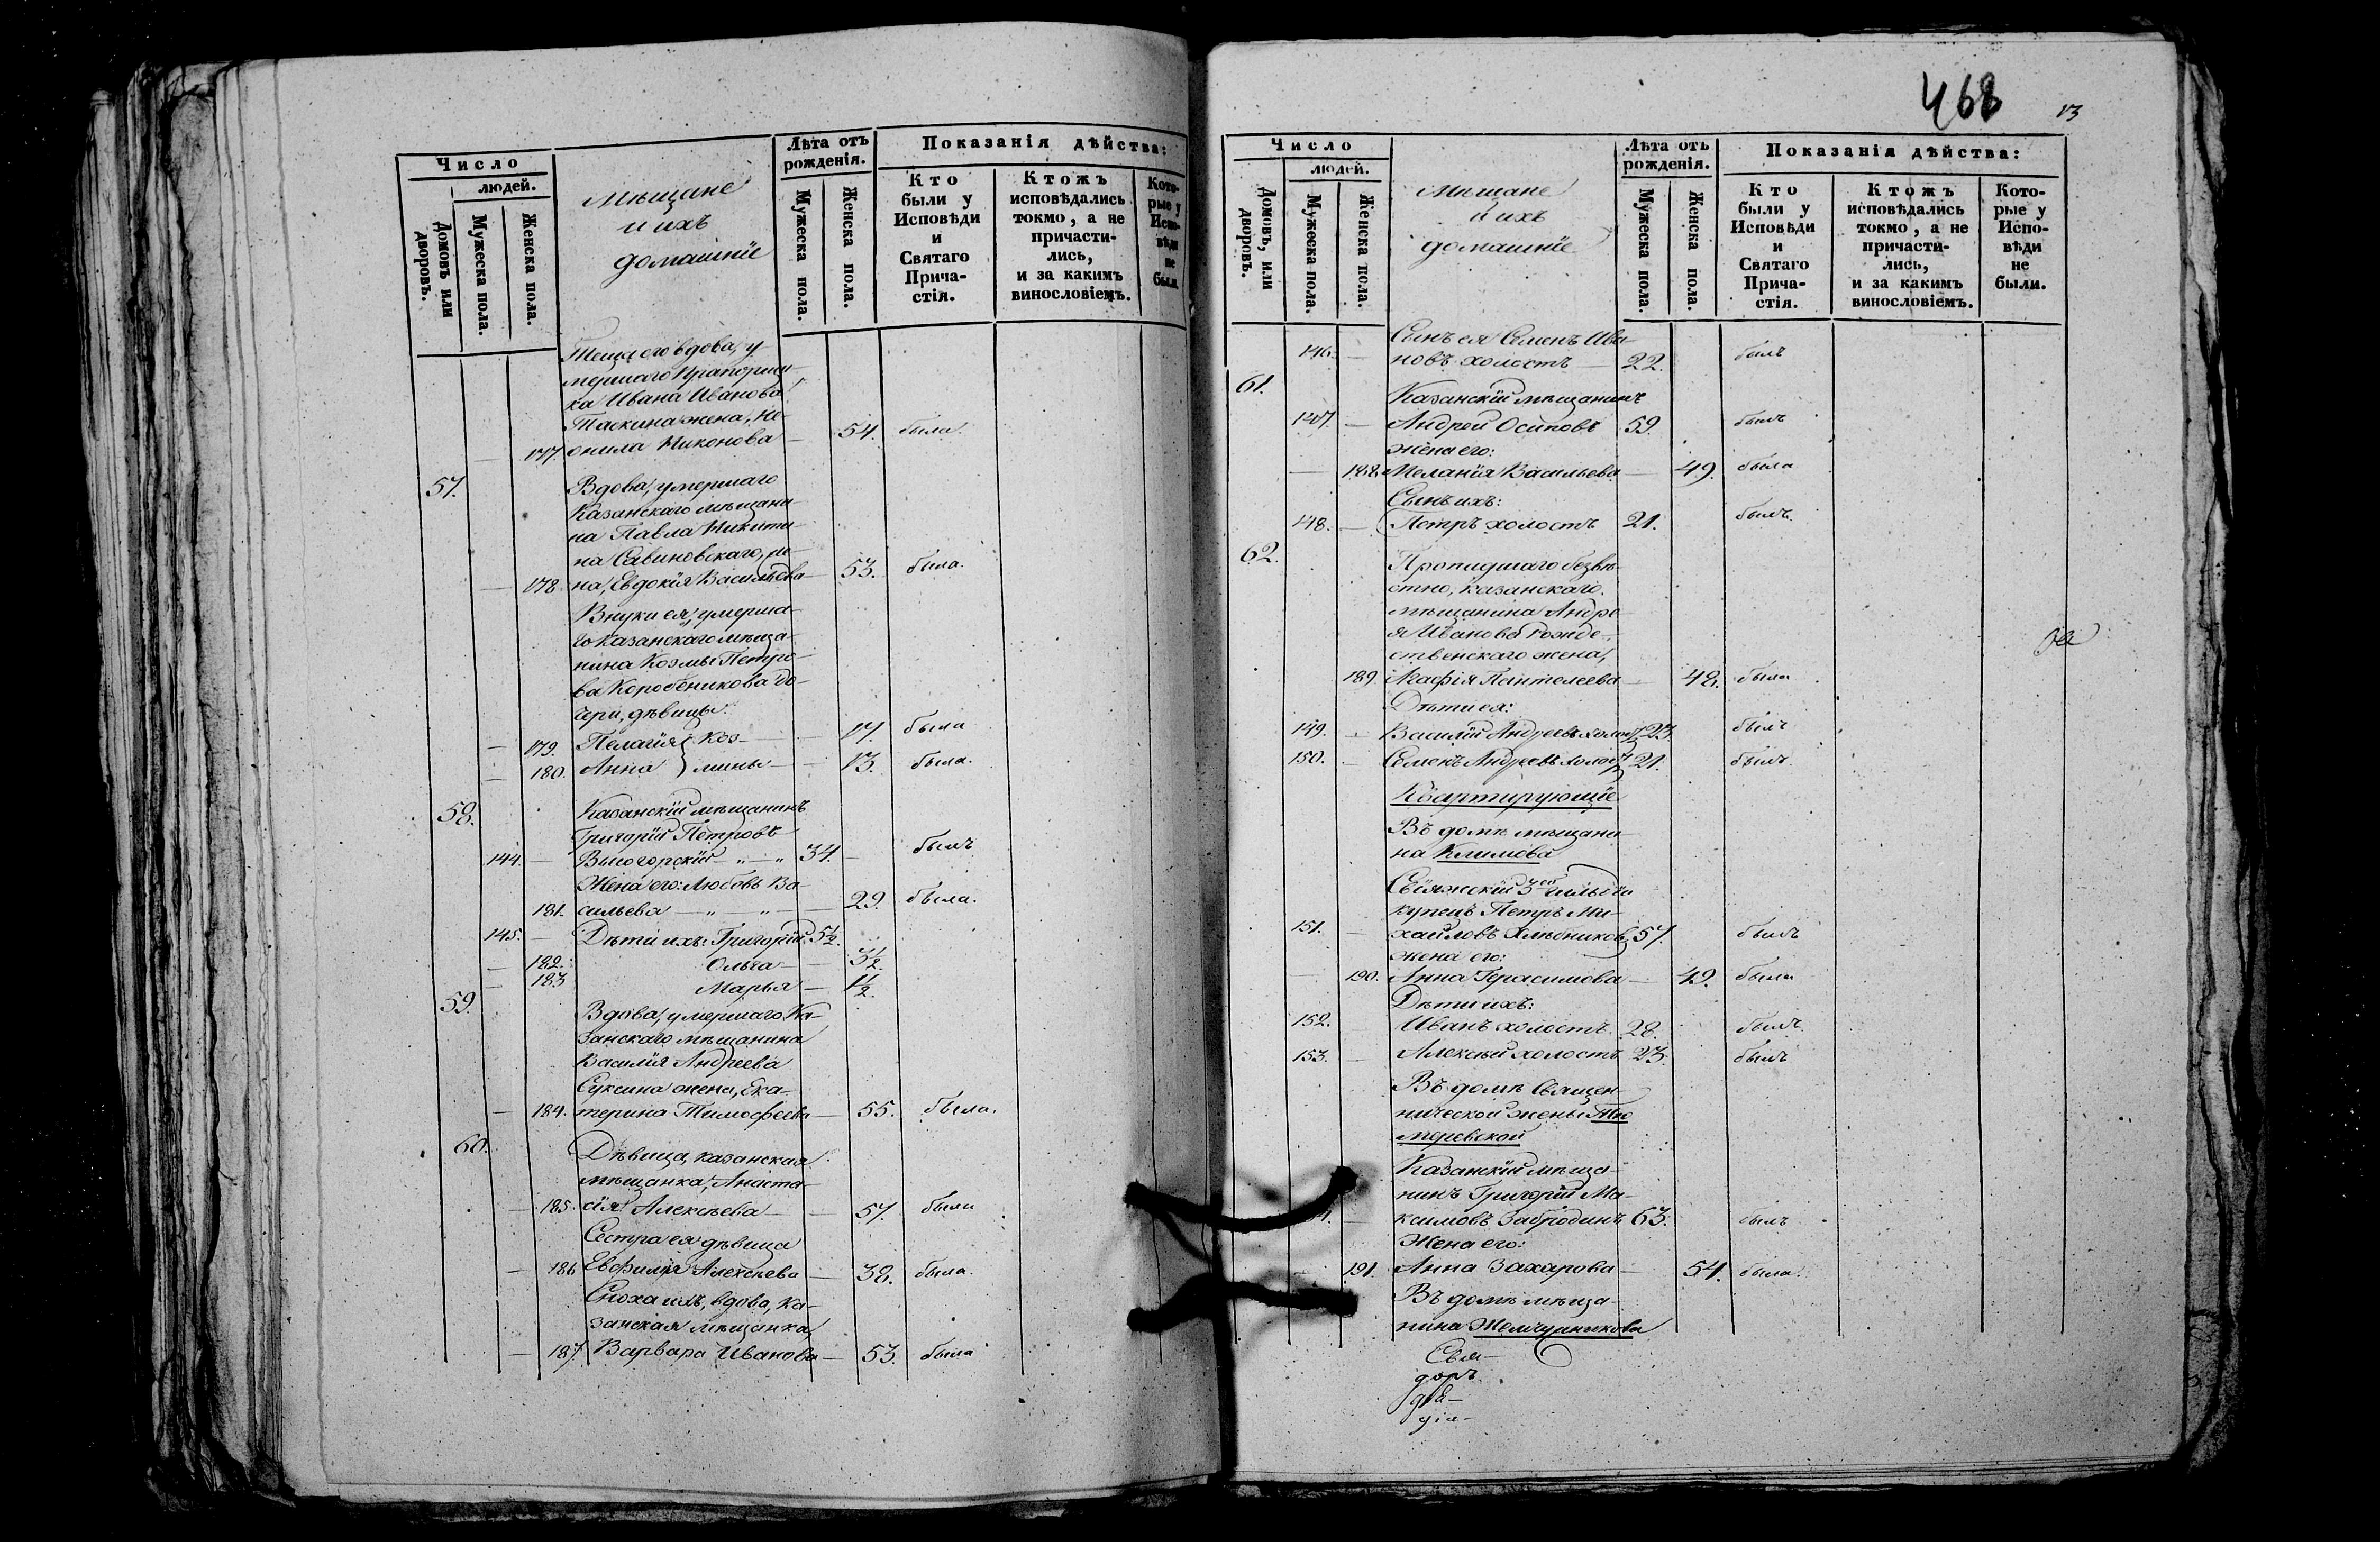 Число
людей.
Домовъ или дворовъ.
Мужеска пола.
Женска пола.
Мѣщане
и ихъ
домашніе
Лѣта отъ рожденія.
Мужеска пола.
Женска пола.
Показанія дѣйства:
Кто были у Исповѣди и Святаго Прича-стія.
Ктожъ исповѣдались токмо, а не причасти-лись, и за какимъ винословіемъ.
Кото-рые у Испо-вѣди не были.
Теща его вдова, у-
мершаго Прапорщи-
ка Ивана Иванова
Таскина жена, Не-
177. онила Никонова 54. была.
57. Вдова, умершаго
Казанскаго мѣщани-
на Павла Никити-
на Савиновскаго, же-
178. на, Евдокія Васильева 53. была.
Внуки ея, умерша-
го Казанскаго мѣща-
нина Козмы Петро-
ва Коробейникова до-
чери, дѣвицы:
179. Пелагія Коз- 17. была
180. Анна мины 13. была.
58. Казанскій мѣщанинъ
Григорій Петровъ
144. Высогорскій 34. былъ
Жена его: Любовь Ва-
181. сильева 29. была.
145. Дѣти ихъ: Григорій 5½.
182. Ольга 3½.
183 Марья ½.
59. Вдова, умершаго Ка-
занскаго мѣщанина
Василія Андреева
Суксина жена, Ека-
184. терина Тимофеева 55. была.
60. Дѣвица, казанская
мѣщанка, Анаста-
185. сія Алексѣева 57. была
Сестра ея дѣвица
186 Евфимія Алексѣева 38. была.
Сноха ихъ, вдова, ка-
занская мѣщанка,
187. Варвара Иванова 53. была
468 13
Число
людей.
Домовъ, или дворовъ.
Мужеска пола.
Женска пола.
Мѣщане
и ихъ
домашніе
Лѣта отъ рожденія.
Мужеска пола.
Женска пола.
Показанія дѣйства:
Кто были у Исповѣди и Святаго Прича-стія.
Ктожъ исповѣдались токмо, а не причасти-лись, и за какимъ винословіемъ.
Кото-рые у Испо-вѣди не были.
Сынъ ея Семенъ Ива-
146. новъ холостъ 22. былъ
61. Казанскій мѣщанинъ
147. Андрей Осиповъ 59. былъ
Жена его:
188. Меланія Васильева 49. была
Сынъ ихъ:
148. Петръ холостъ 21. былъ.
62. Пропадшаго безвѣ-
стно, казанскаго
мѣщанина Андре-
я Иванова Рожде-
ственскаго жена,
189. Агафія Пантелеева 48. была
Дѣти ея:
149. Василій Андреевъ холост 23. былъ
150. Семенъ Андреевъ холост 21. былъ
Квартирующіе
Въ домѣ мѣщани-
на Климова
Свіяжскій 3ей гильдіи
купецъ Петръ Ми-
151. хайловъ Хлѣбников 57. былъ
жена его:
190. Анна Герасимова 49. была
Дѣти ихъ:
152. Иванъ холостъ 28. былъ
153. Алексѣй холостъ 23. былъ
Въ домѣ Священ-
нической жены
Казанскій мѣща-
нинъ Григорій Ма-
ксимовъ Забродинъ 63. былъ
Жена его:
191. Анна Захарова 54. была.
Въ домѣ мѣща-
нина Жемчужникова